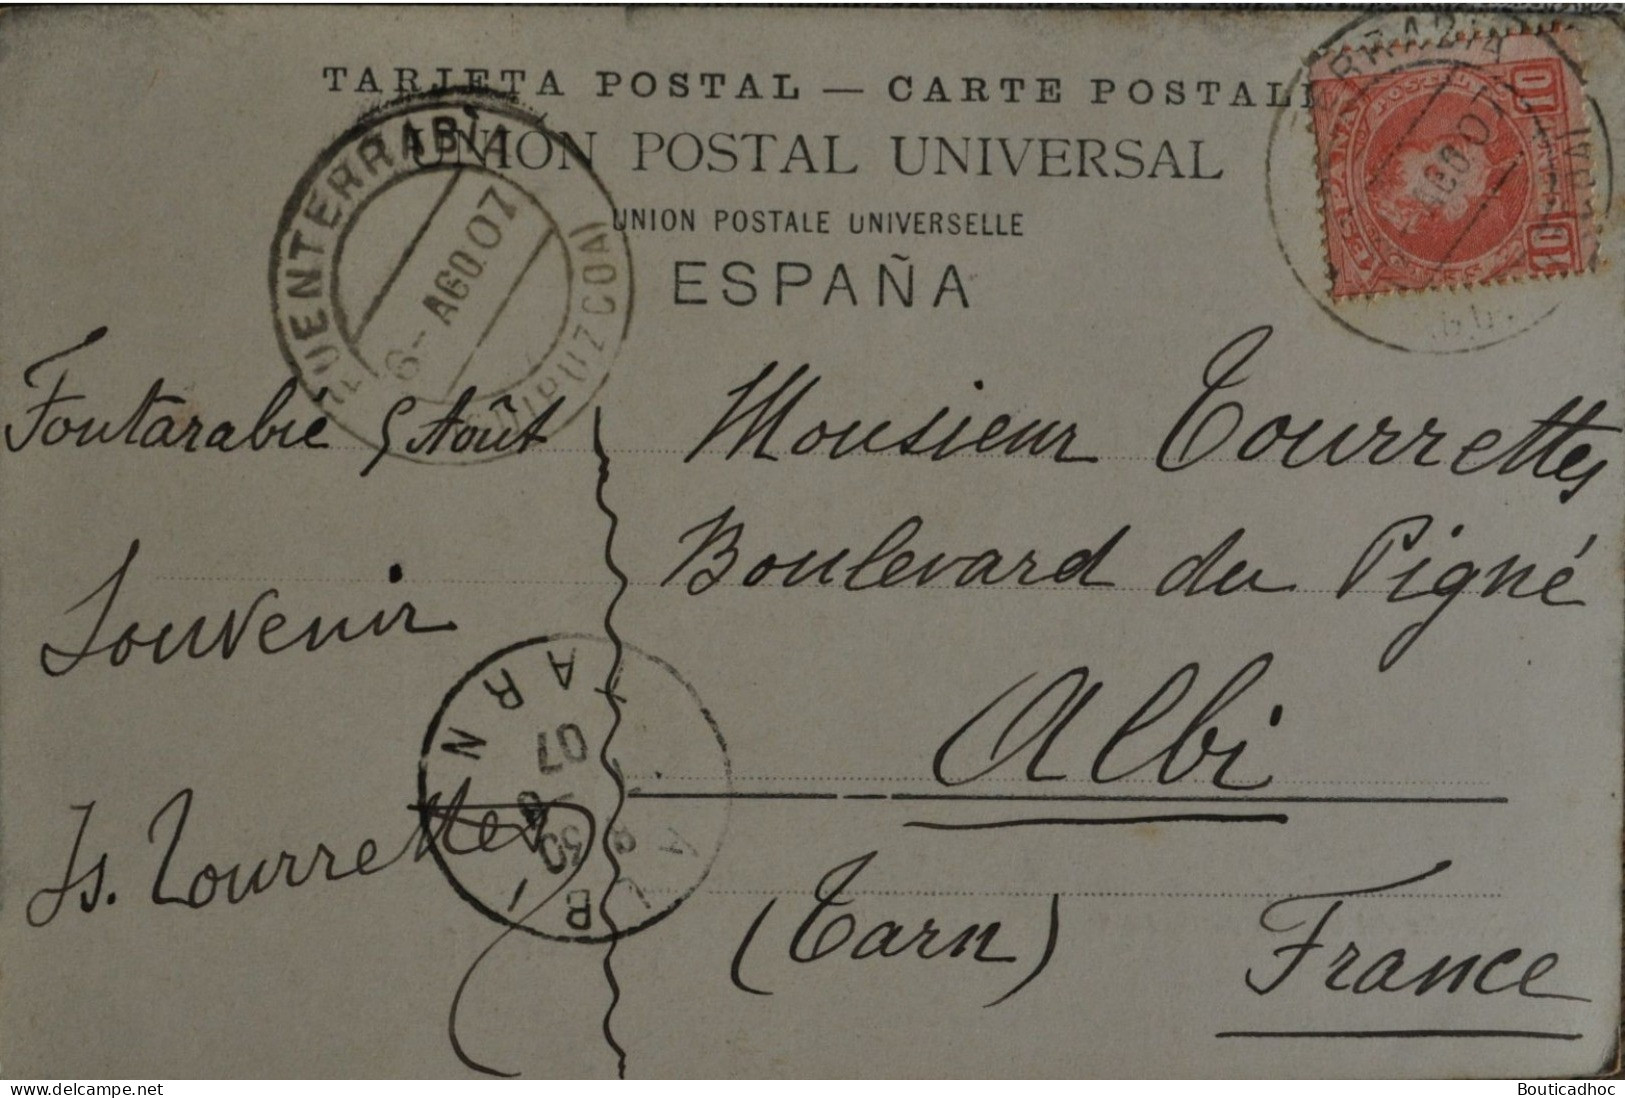 TARJETA POSTAL — CARTE POSTALE
UNIÓN POSTAL UNIVERSAL
UNION POSTALE UNIVERSELLE
ESPAÑA
FUENTERRABÍA
6- AGO.07
(GUIPUZCOA)
ESPAÑA
10 10
AGO.07
Fontarabie 5 Août
Souvenir
Is. Tourrettes
Monsieur Tourrettes
Boulevard du Pigné
Albi
(Tarn)
France
ALBI
TARN
07
30
8
delcampe.net
Bouticadhoc